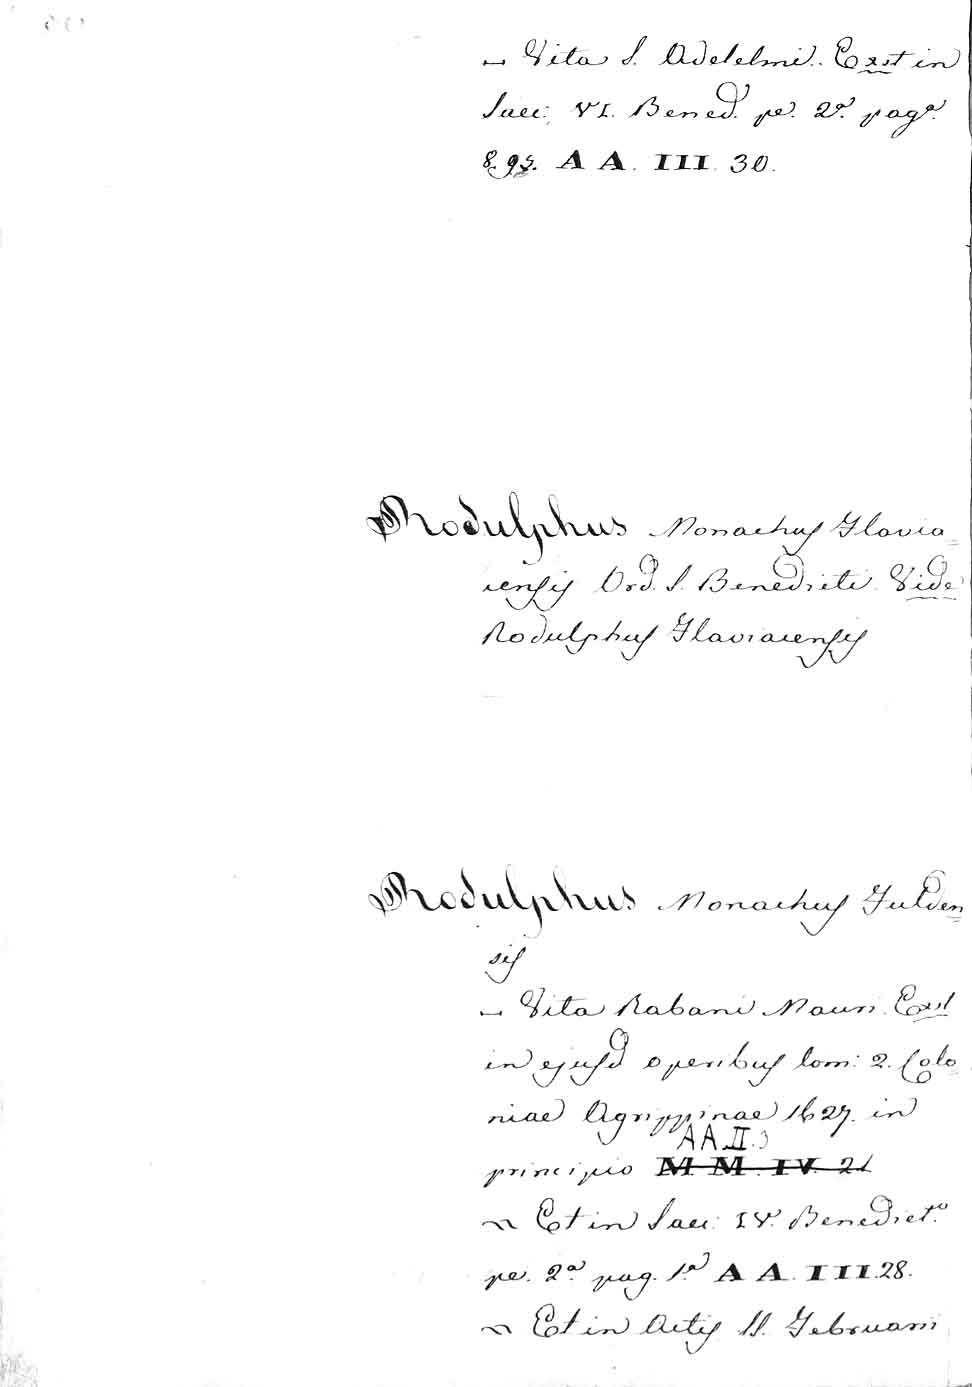 – Vita S. Adelelmi. Exst in
Saec. VI. Bened. pe. 2ª pagª.
895. AA. III. 30.
Rodulphus Monachus Flavia=
censis Ord. S. Benedicti Vide
Rodulphus Flaviacensis
Rodulphus Monachus Fulden=
sis
– Vita Rabani Mauri. Exst
in ejusd operibus tom: 2. Colo=
niae Agrippinae 1627. in
AA II.
principio MM. IV. 21
~ Et in Saec. IV. Benedictº
pe. 2ª pag. 1ª AA. III. 28.
~ Et in Actis SS. Februarii